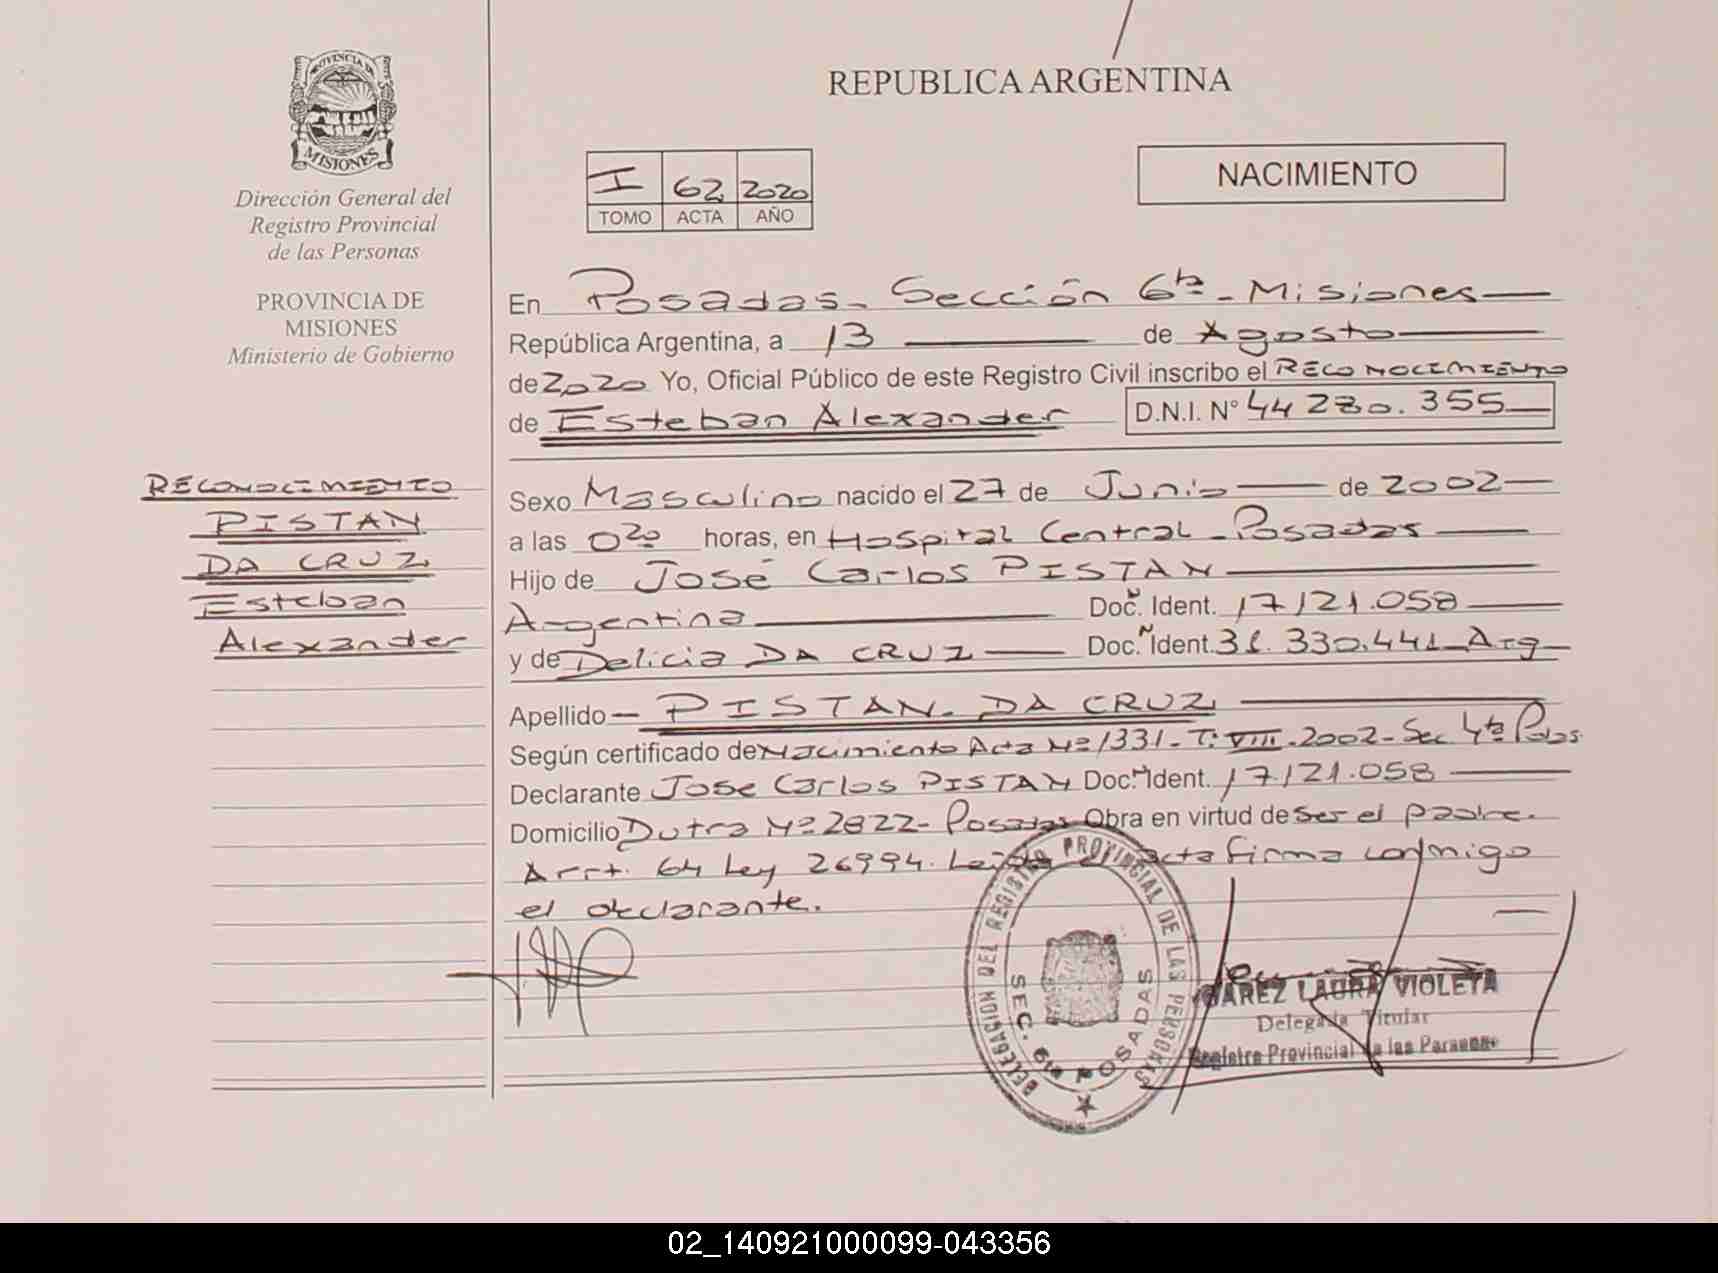 PROVINCIA DE
MISIONES
Dirección General del
Registro Provincial
de las Personas
PROVINCIA DE
MISIONES
Ministerio de Gobierno
RECONOCIMIENTO
PISTAN
DA CRUZ
Esteban
Alexander
REPUBLICA ARGENTINA
NACIMIENTO
I 62 2020
TOMO ACTA AÑO
En Posadas - Sección 6ta - Misiones
República Argentina, a 13 de Agosto
de 2020 Yo, Oficial Público de este Registro Civil inscribo el RECONOCIMIENTO
de Esteban Alexander D.N.I. N° 44 280.355
Sexo Masculino nacido el 27 de Junio de 2002
a las 020 horas, en Hospital Central - Posadas
Hijo de José Carlos PISTAN
Argentina Doc. Ident. 17.121.058
y de Delicia DA CRUZ Doc. Ident. 31.330.441 Arg
Apellido PISTAN - DA CRUZ
Según certificado de Nacimiento Acta Nº 1331 - T: VIII - 2002 - Sec 4ta Pdas
Declarante Jose Carlos PISTAN Doc. Ident. 17.121.058
Domicilio Dutra Nº 2822 - Posadas Obra en virtud de ser el padre.
Arrt. 64 Ley 26994. Leida el acta firma conmigo
el declarante.
DELEGACION DEL REGISTRO PROVINCIAL DE LAS PERSONAS
SEC. 6ta POSADAS
LAURA VIOLETA
Delegada Titular
Registro Provincial de las Personas
02_140921000099-043356